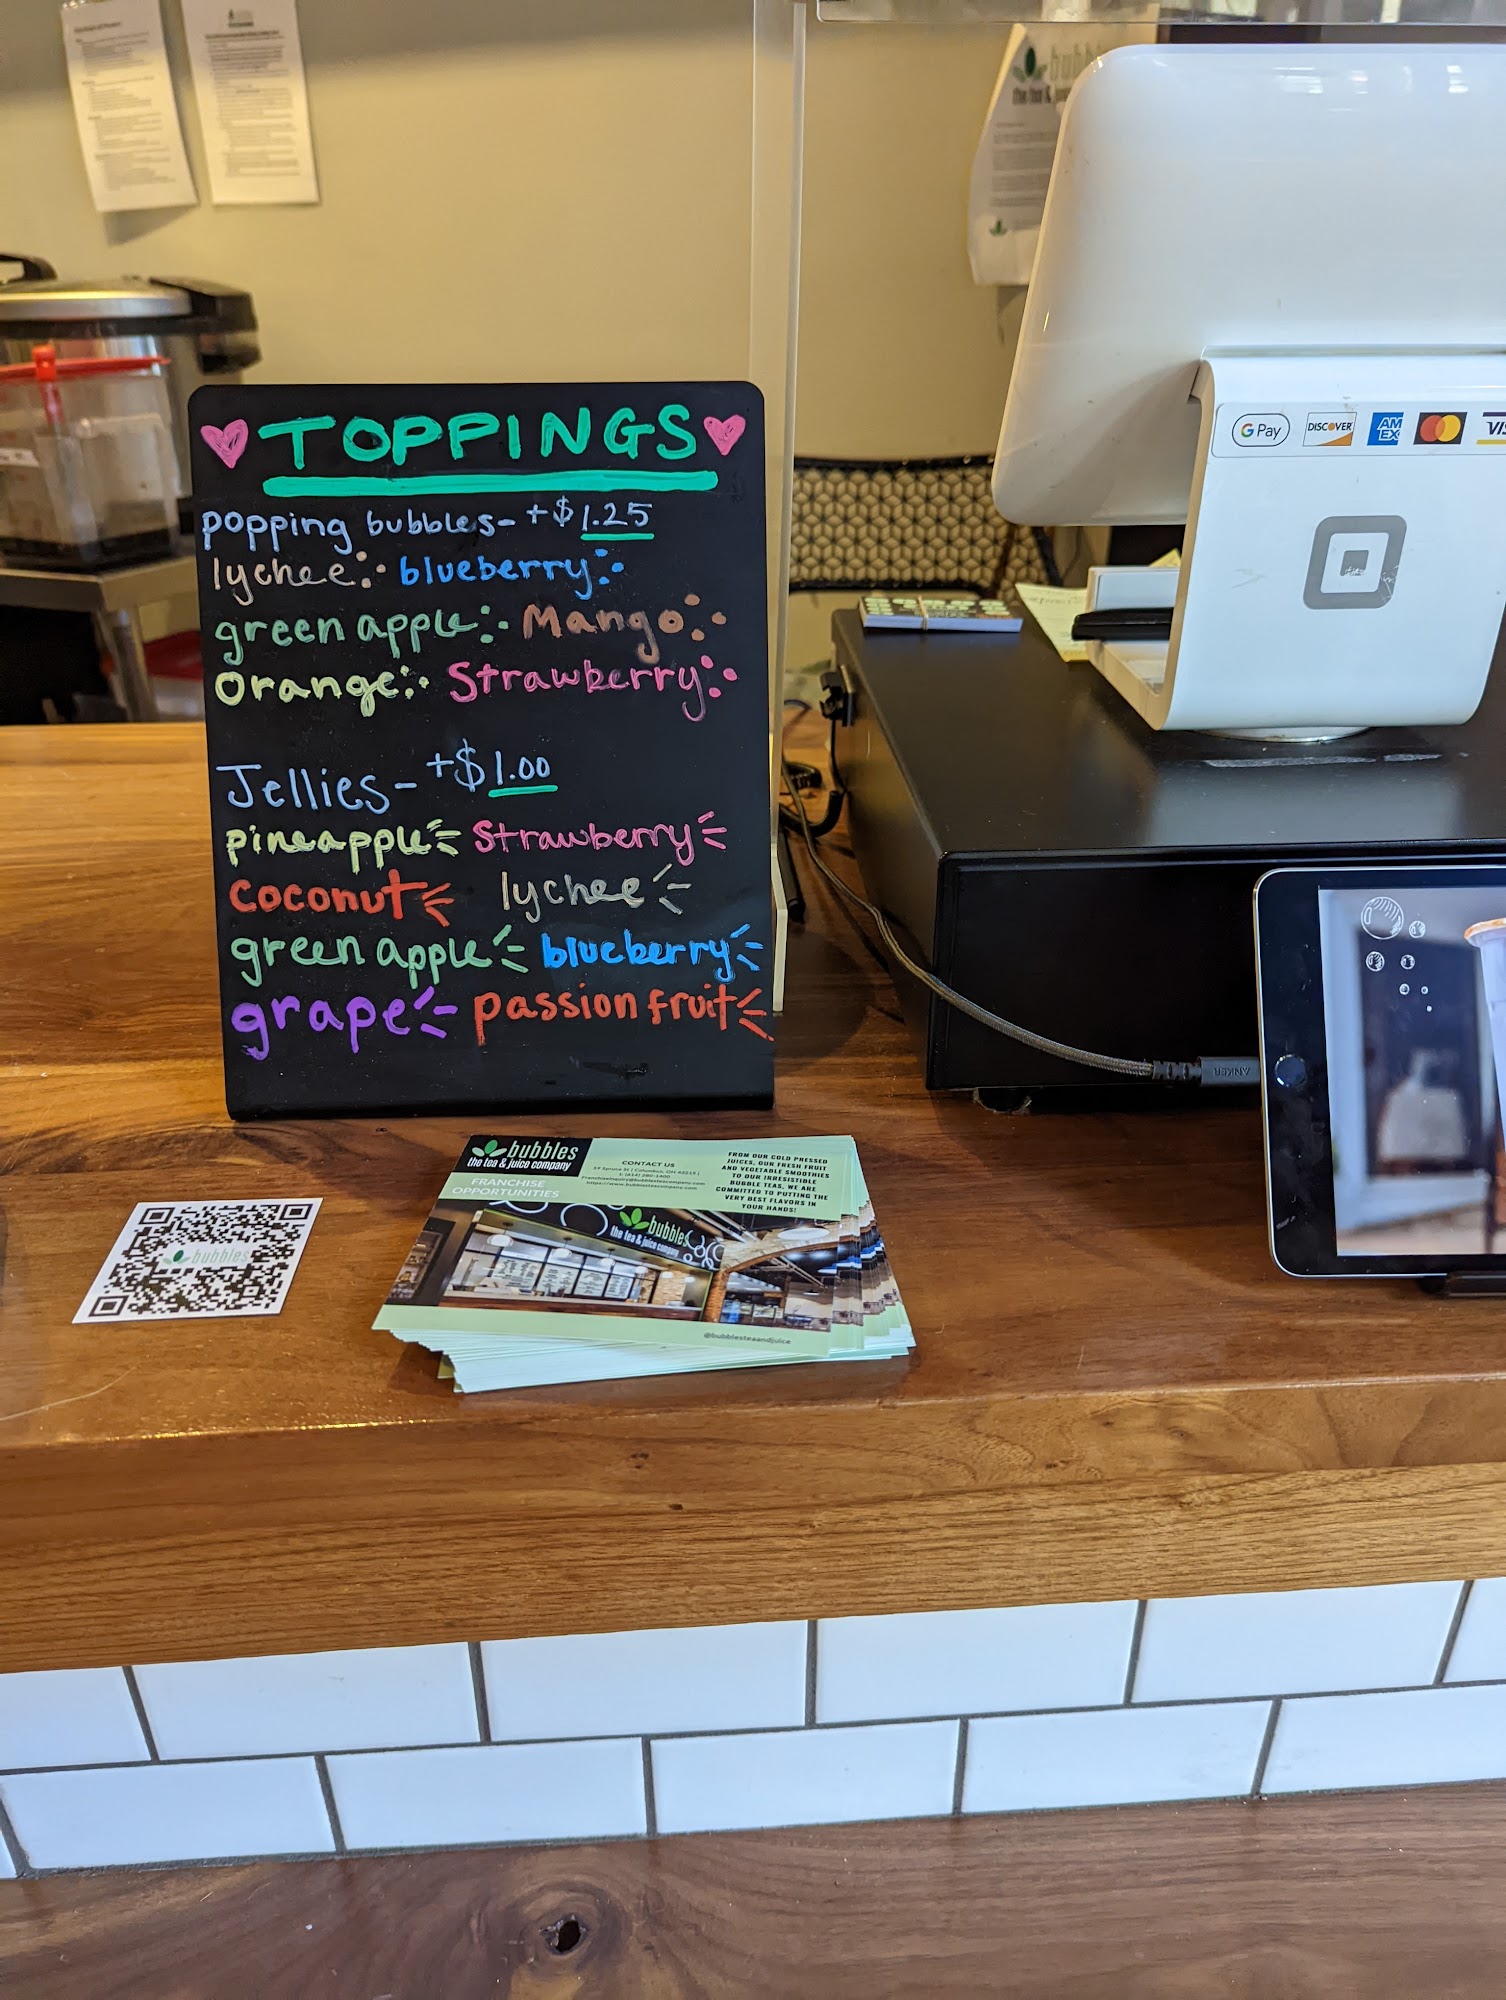 TOPPINGS
popping bubbles- +$1.25
lychee blueberry
green apple Mango
Orange Strawberry
Jellies- +$1.00
pineapple Strawberry
coconut lychee
green apple blueberry
grape passion fruit
G Pay DISCOVER AM EX VIS
ANKER
bubbles
bubbles
the tea & juice company
FRANCHISE
OPPORTUNITIES
CONTACT US
59 Spruce St | Columbus, OH 43215 |
FROM OUR COLD PRESSED
JUICES, OUR FRESH FRUIT
AND VEGETABLE SMOOTHIES
TO OUR IRRESISTIBLE
BUBBLE TEAS, WE ARE
COMMITTED TO PUTTING THE
VERY BEST FLAVORS IN
YOUR HANDS!
bubbles
the tea & juice company
@bubblesteaandjuice